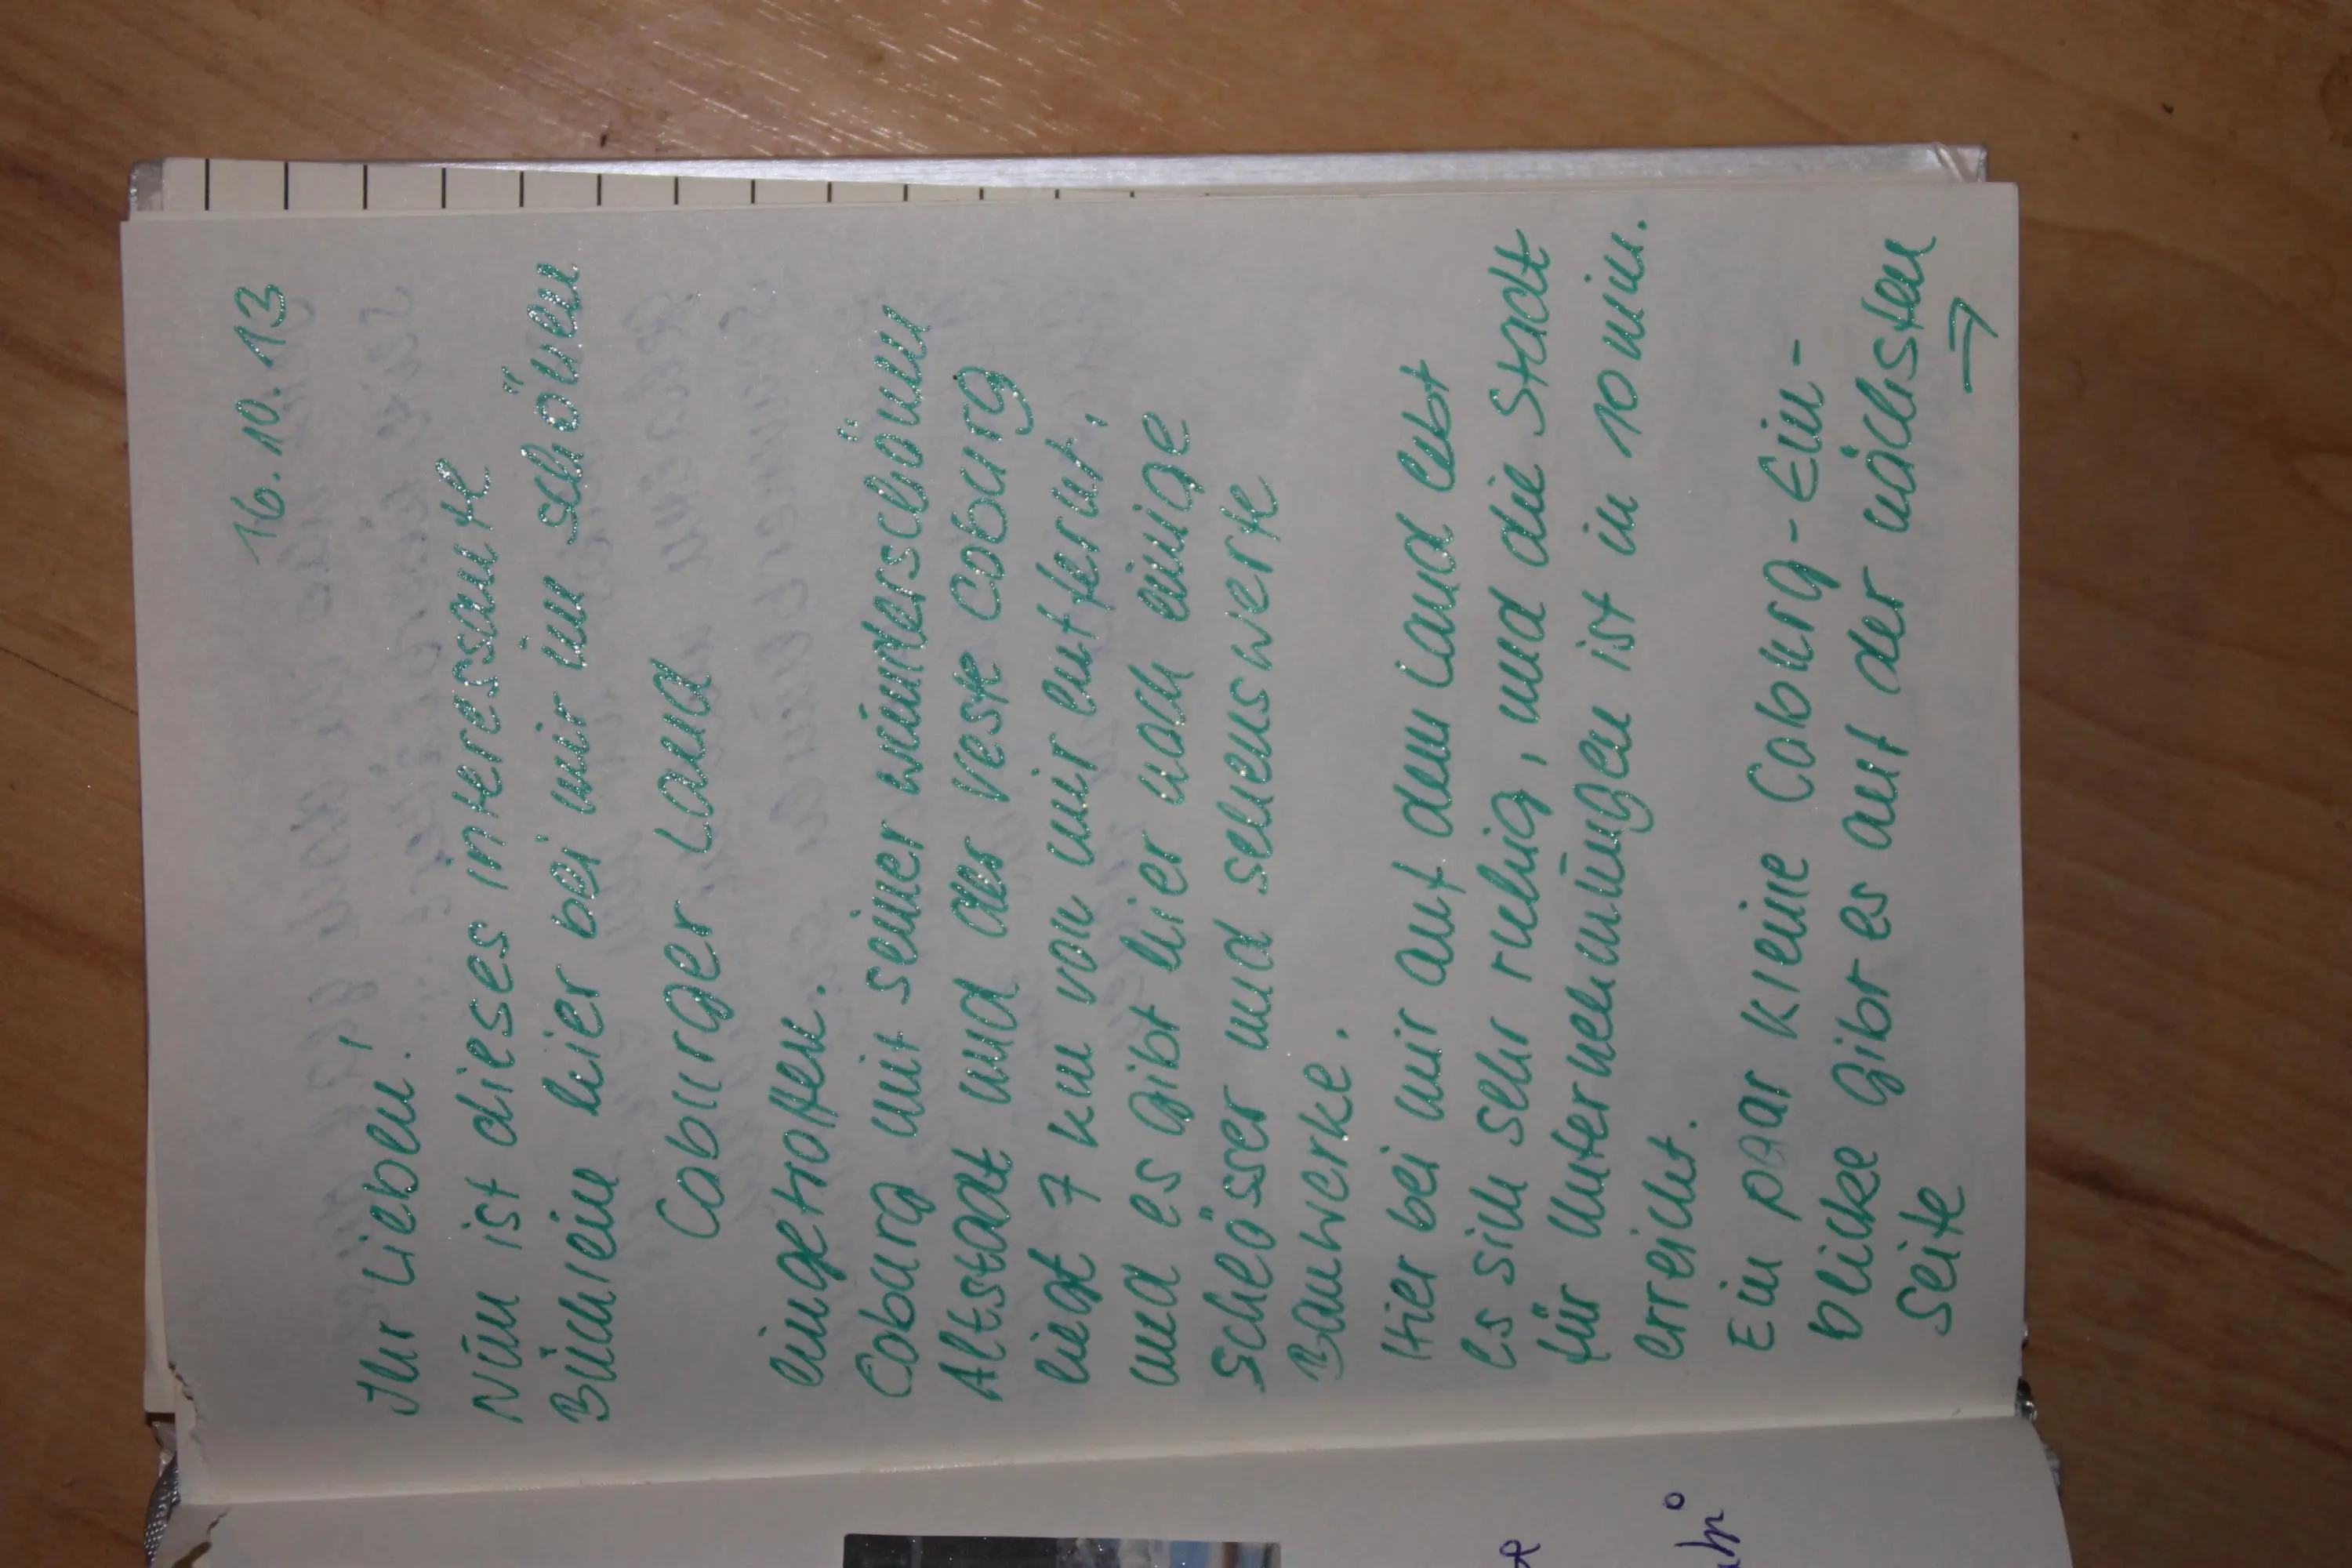 16.10.13
Ihr Lieben!
Nun ist dieses interessante
Büchlein hier bei mir im schönen
Coburger Land
eingetroffen.
Coburg mit seiner wunderschönen
Altstadt und der Veste Coburg
liegt 7 km von mir entfernt,
und es gibt hier noch einige
Schlösser und sehenswerte
Bauwerke.
Hier bei mir auf dem Land lebt
es sich sehr ruhig, und die Stadt
für Unternehmungen ist in 10 min.
erreicht.
Ein paar kleine Coburg-Ein-
blicke gibt es auf der nächsten
Seite →